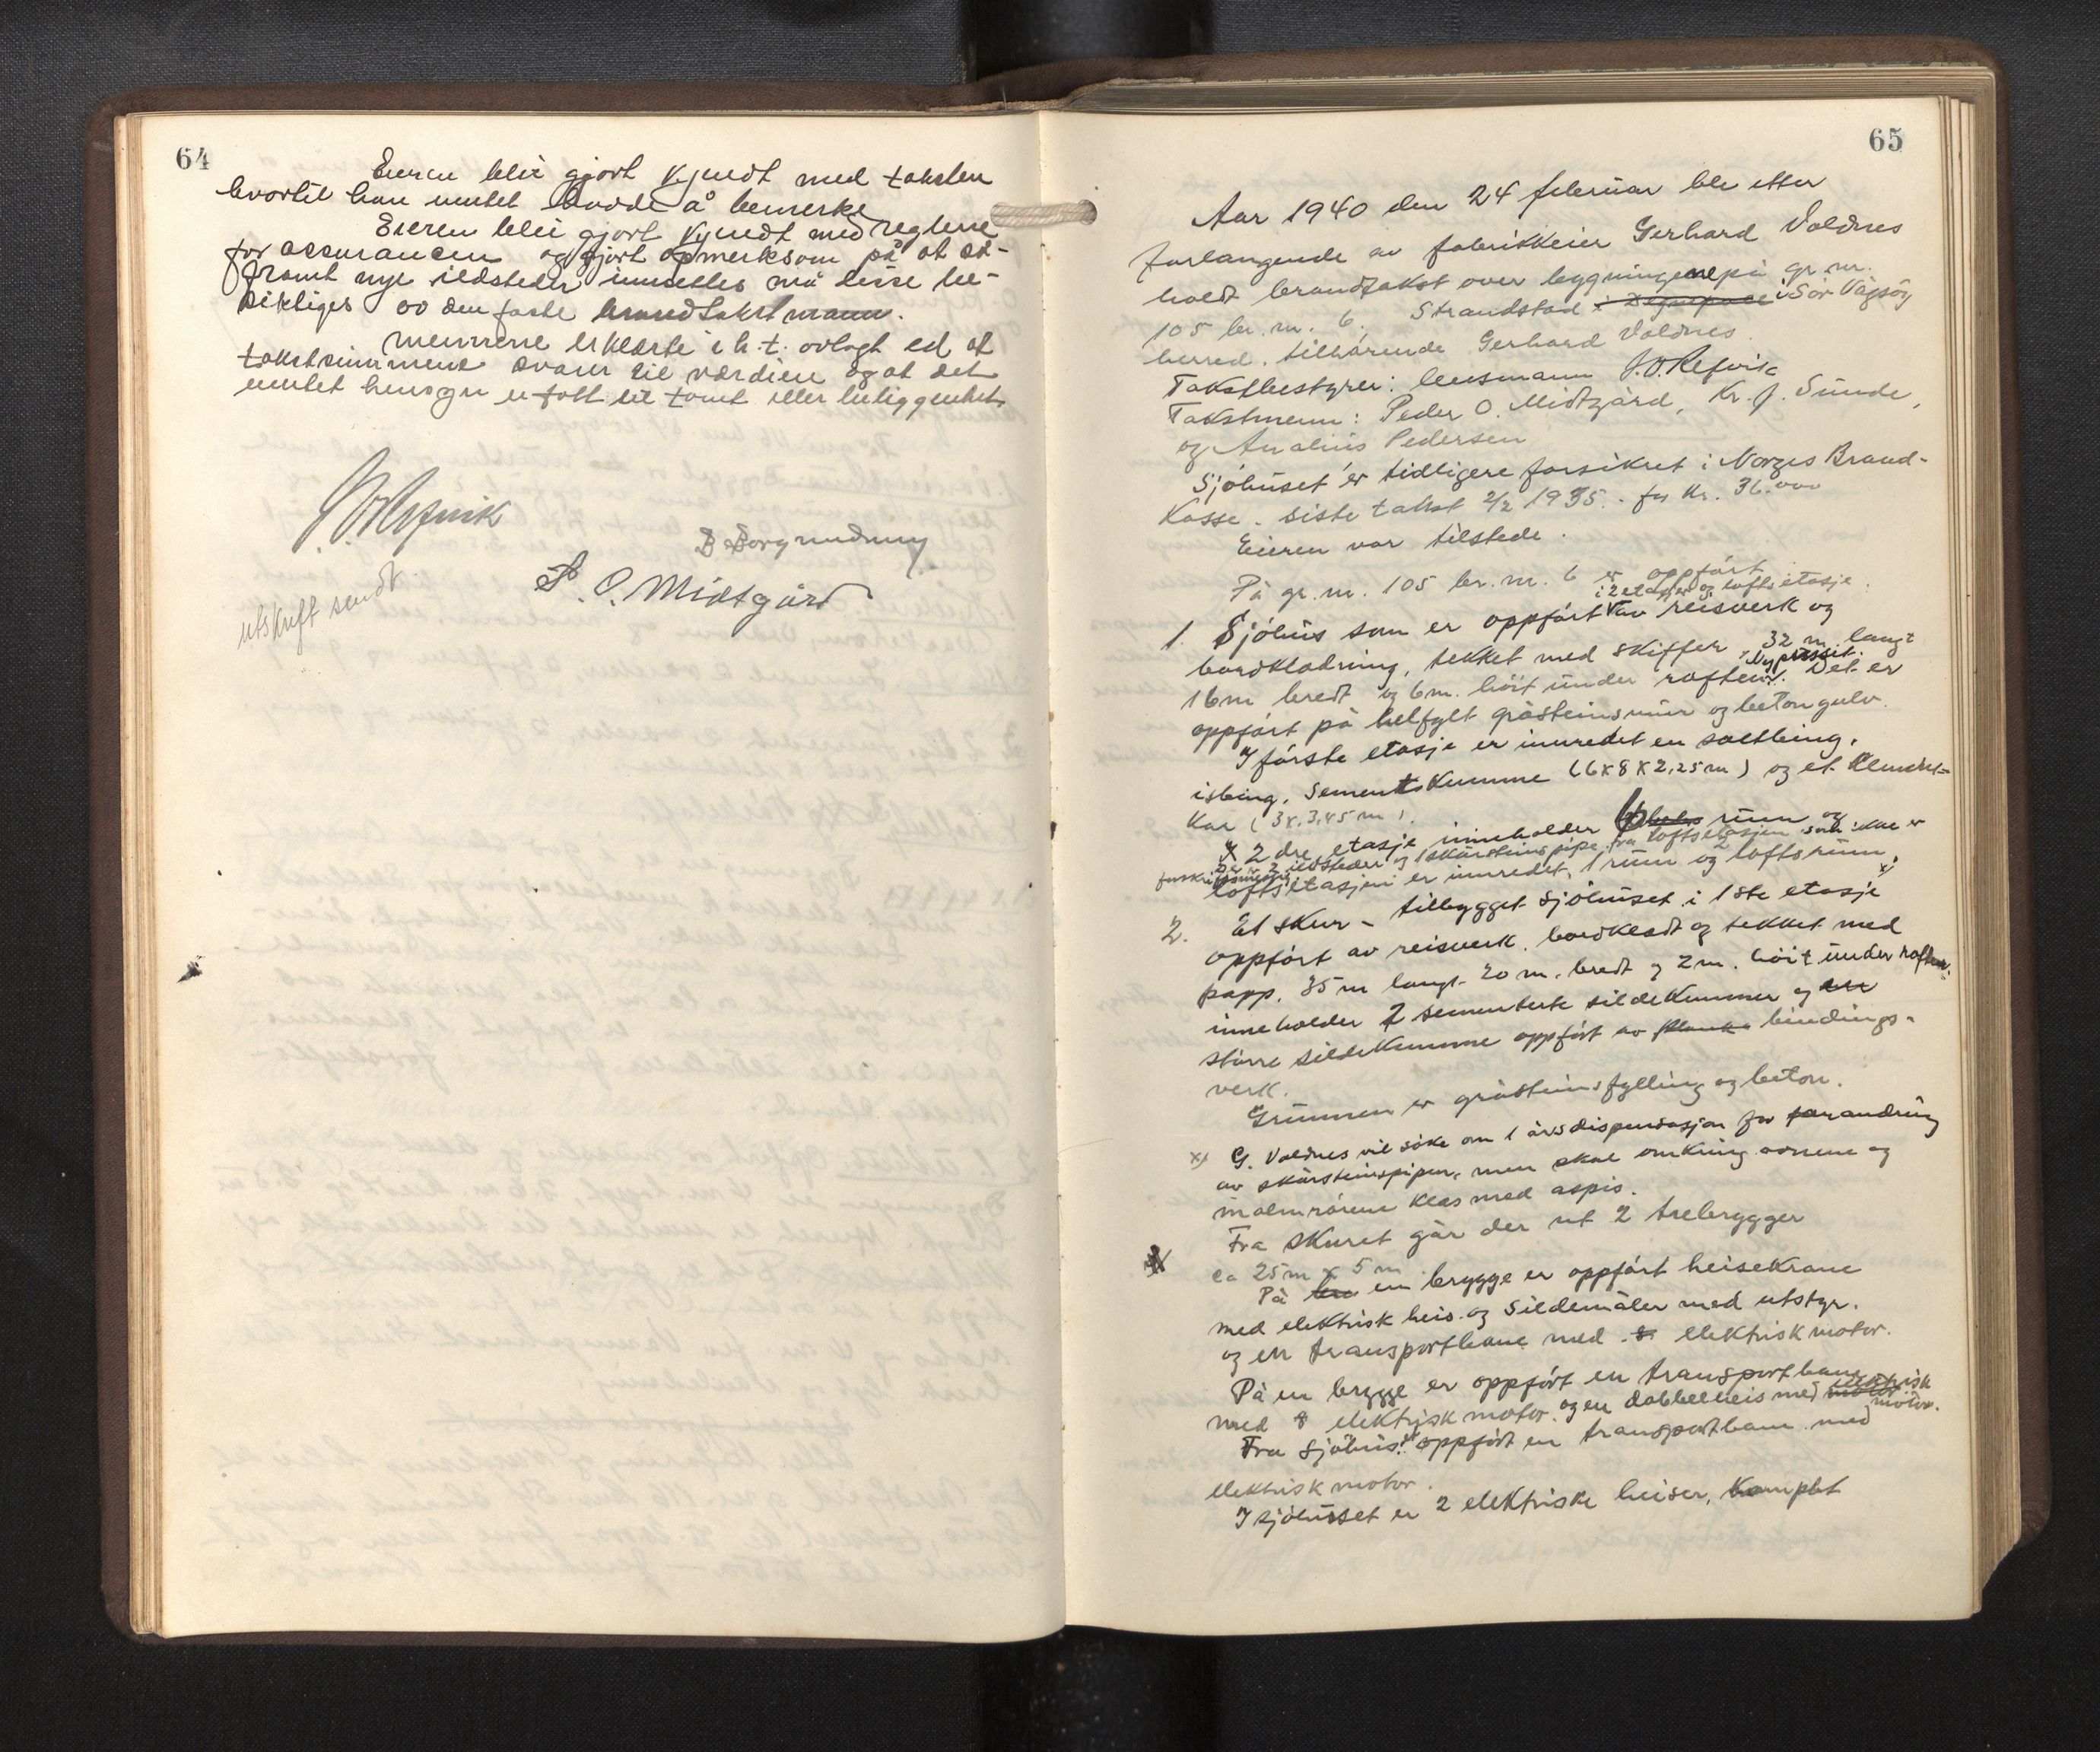 64
Eieren blei gjort kjendt med taksten
hvortil han intet havde å bemerke
Eieren blei gjort kjendt med reglene
for assurancen og gjort opmerksom på at så-
framt nye ildsteder innsettes må disse be-
siktiges av den faste brandtakstmann.
mennene erklærte i h.t. avlagt ed at
takstsummene svarer til værdien og at det
intet hensyn er tatt til tomt eller beliggenhet.
J. O. Refvik
B Borgundnug
P. O. Midtgård
utskrift sendt
65
Aar 1940 den 24 februar ble etter
forlangende av fabrikkeier Gerhard Valdnes
holdt brandtakst over bygningene på gr. nr.
105 br. nr. 6. Strandstad i Sør Vågsøy
herred. tilhørende Gerhard Valdnes
Takstbestyrer: lensmann J. O. Refvik
Takstmenn: Peder O. Midtgård, Kr. J. Sunde,
og Analius Pedersen
Sjøhuset er tidligere forsikret i Norges Brand-
kasse. siste takst 2/2 1935. for kr. 36.000
Eieren var tilstede.
På gr. nr. 105 br. nr. 6 er oppført
i 2 etasjer og loftsetasje.
1. Sjøhus som er oppført av reisverk og
bordkledning, tekket med skiffer, 32 m langt
16 m bredt og 6 m. høit under raften. Det er
oppført på helfylt gråsteinsmur og betongulv.
I første etasje er innredet en saltbing,
isbing, sementskumme (6x8x2,25 m) og et
kar (3x.3,45 m).
X 2 dre etasje inneholder 6 rum og
2 ildsteder og 1 skorsteinspipe fra loftsetasjen som ikke er
loftsetasjen er innredet, 1 rum og 2 loftsrum. x)
2. Et skur - tilbygget sjøhuset i 1ste etasje
oppført av reisverk. bordkledt og tekket med
papp. 35 m langt 20 m. bredt og 2 m. høit under raften.
inneholder 7 sementerte sildekummer og en
større sildekumme oppført av planke bindings-
verk.
Grunnen er gråsteinsfylling og beton.
x) G. Valdnes vil søke om 1 års dispensasjon for forandring
av skorsteinspipen, men skal omkring ovnene og
malmrørene klæs med aspis.
Fra skuret går der ut 2 trebrygger
ca 25 m x 5 m
På en brygge er oppført heisekrane
med elektrisk heis og sildemåler med utstyr.
og en transportbane med elektrisk motor.
På en brygge er oppført en transportbane
med elektrisk motor og en dobbelheis med elektrisk
motor.
Fra sjøhuset oppført en transportbane med
elektrisk motor.
I sjøhuset er 2 elektriske heiser, komplet